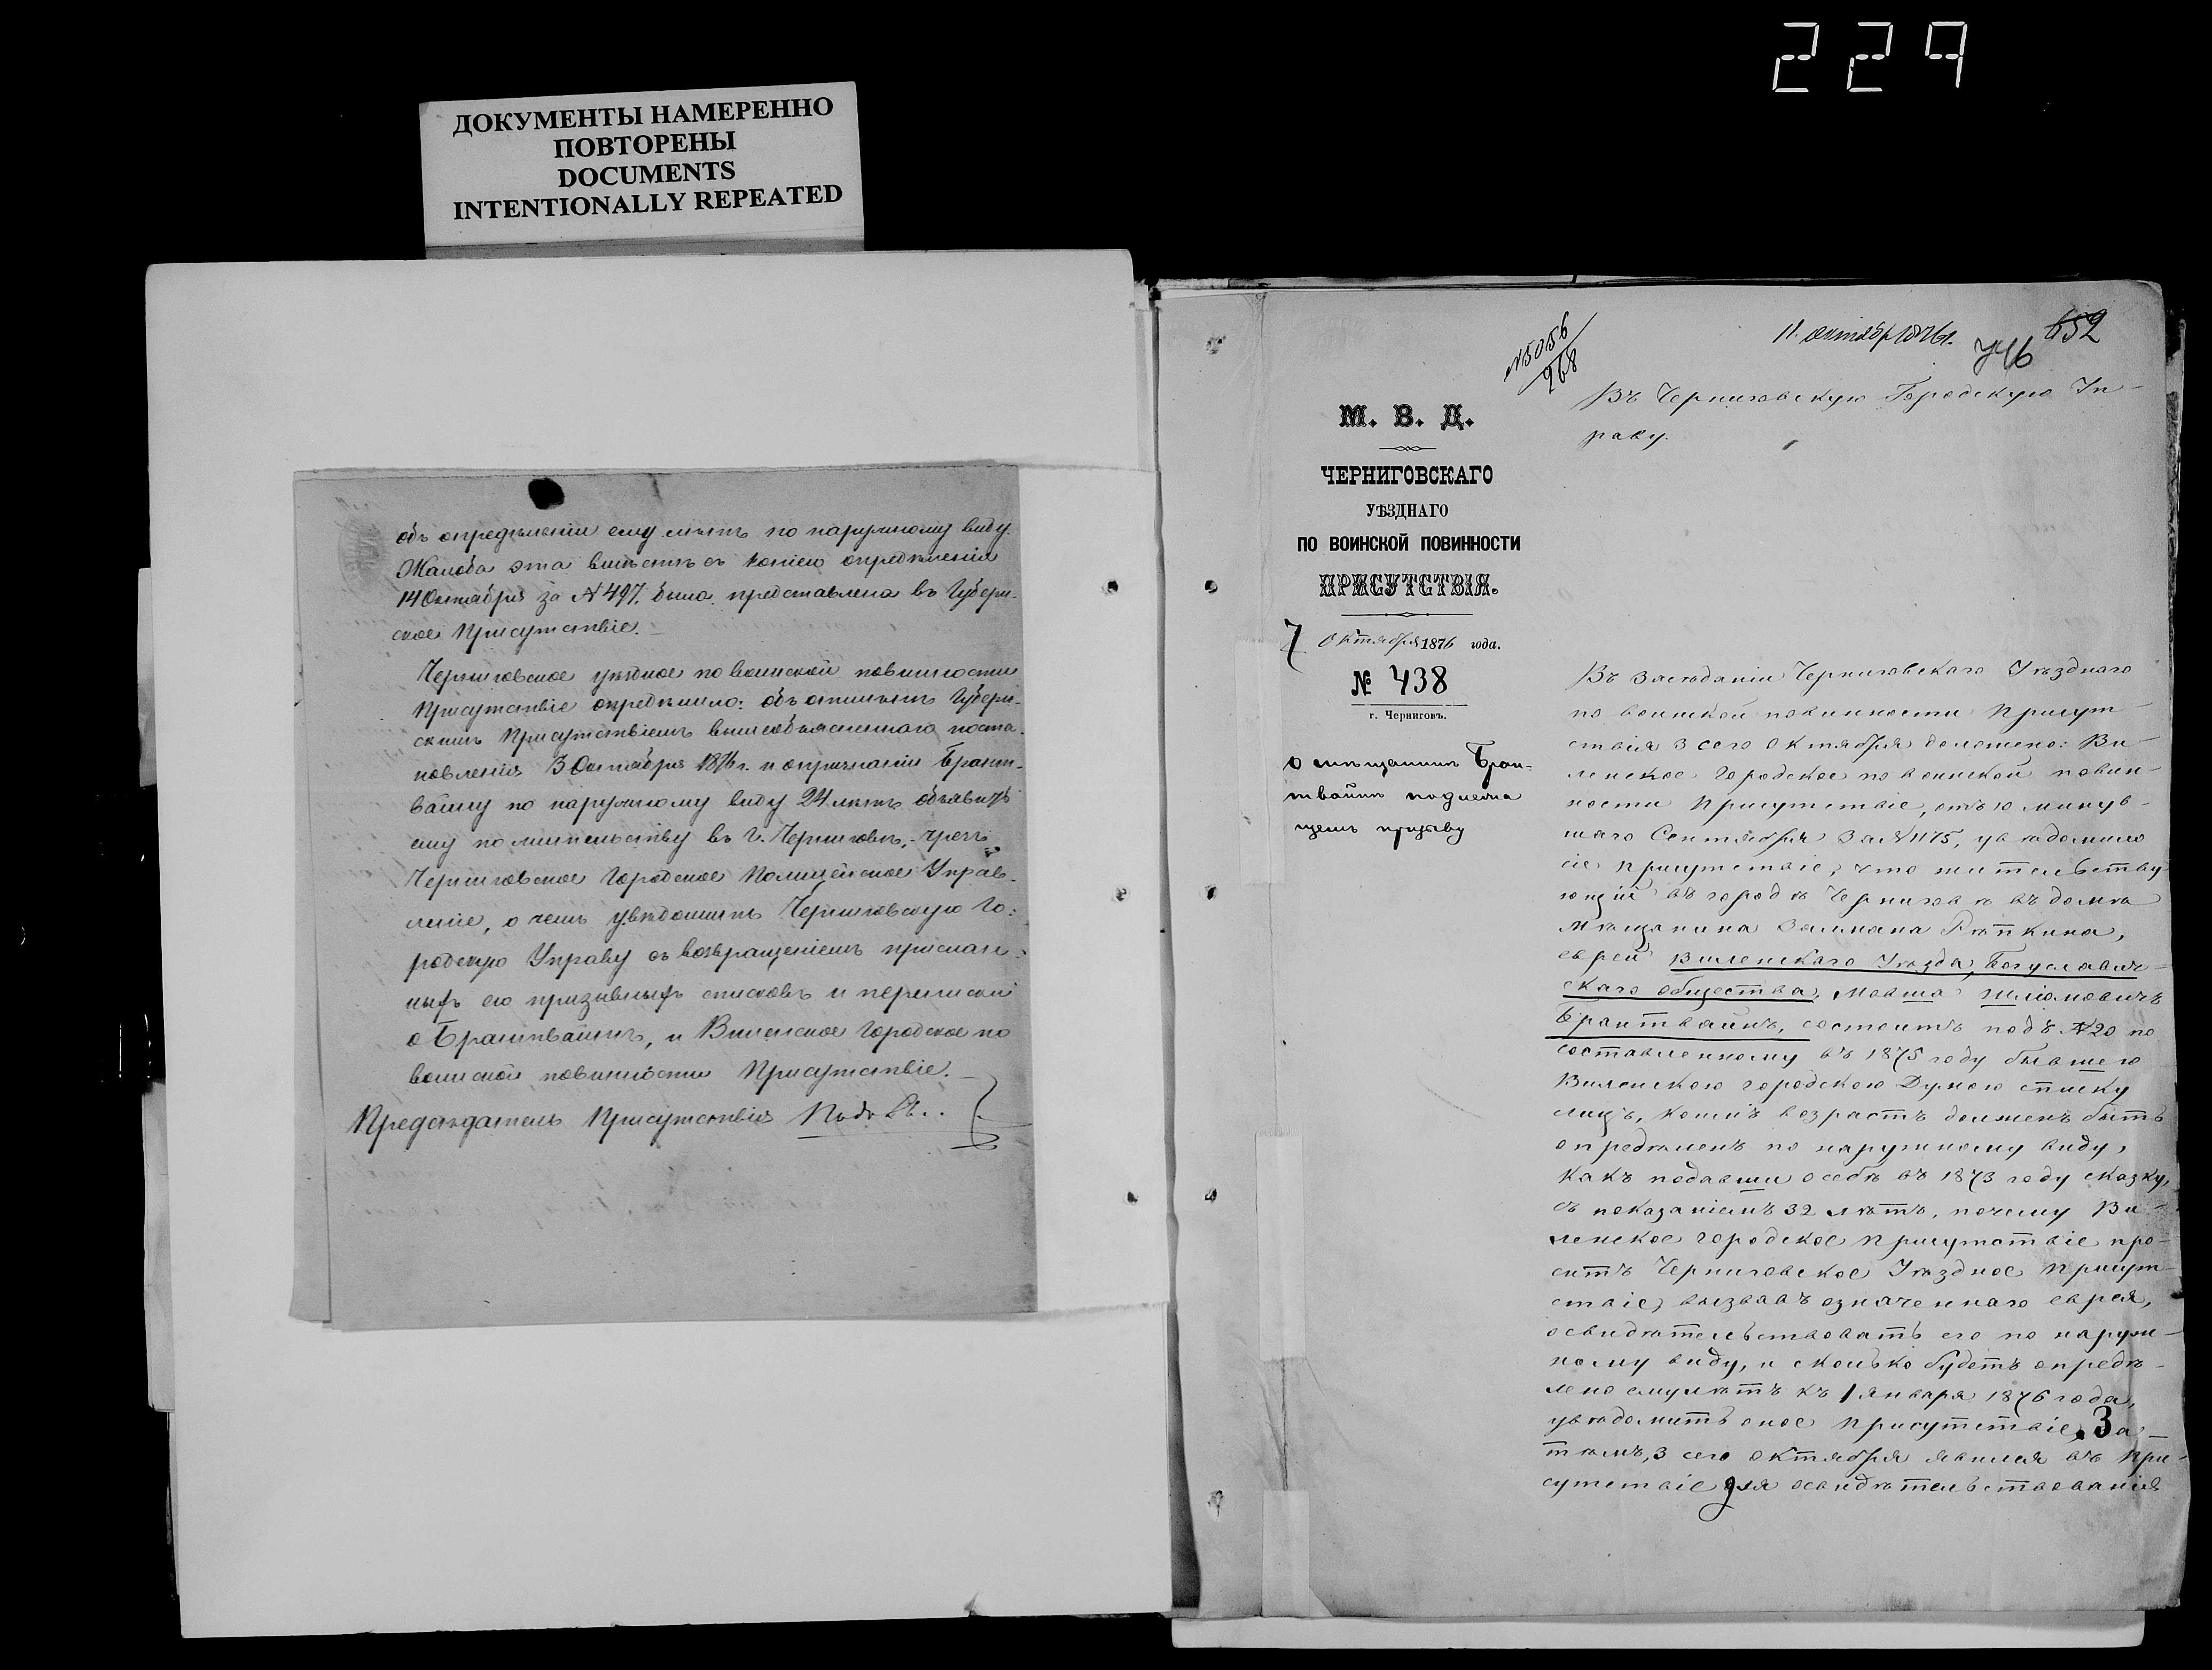 229
ДОКУМЕНТЫ НАМЕРЕННО
ПОВТОРЕНЫ
DOCUMENTS
INTENTIONALLY REPEATED
объ опредѣленіи ему лѣтъ по наружному виду.
Жалоба эта вмѣстѣ съ копіею опредѣленія
14 Октября за № 497. была представлена въ Губерн-
ское Присутствіе.
Черниговское уѣздное по воинской повинности
Присутствіе опредѣлило: объ отмѣнѣ Губерн-
скимъ Присутствіемъ вышеобъясненнаго поста-
новленія 3 Октября 1876 г. и о признаніи Брант-
вайну по наружному виду 24 лѣтъ объявить
ему по жительству въ г. Черниговѣ, чрезъ
Черниговское Городское Полицейское Управ-
леніе, о чемъ увѣдомить Черниговскую Го-
родскую Управу съ возвращеніемъ прислан-
ныхъ ею призывныхъ списковъ и переписки
о Брантвайнѣ, и Виленское Городское по
воинской повинности Присутствіе.
Предсѣдатель Присутствія
№5056
968
11 октября 1876 г.
746
652
Въ Черниговскую Городскую Уп-
раву.
М. В. Д.
ЧЕРНИГОВСКАГО
УѢЗДНАГО
ПО ВОИНСКОЙ ПОВИННОСТИ
ПРИСУТСТВІЯ.
7 Октября 1876 года.
№ 438
г. Черниговъ.
о мѣщанинѣ Бран-
твайнѣ подлежа
щемъ призыву
Въ засѣданіи Черниговскаго Уѣзднаго
по воинской повинности Присут-
ствія 3 сего Октября доложено: Ви-
ленское Городское по воинской повин-
ности Присутствіе, отъ 10 минув-
шаго Сентября за № 1175, увѣдомило
сіе Присутствіе, что жительству-
ющій въ городѣ Черниговѣ въ домѣ
мѣщанина Залмана Рѣпкина,
еврей Виленскаго Уѣзда, Богуславич-
скаго общества, Мовша Шліомовичъ
Брантвайнъ, состоитъ подъ № 20 по
составленному въ 1875 году бывшею
Виленскою городскою Думою списку
лицъ, коихъ возрастъ долженъ быть
опредѣленъ по наружному виду,
какъ подавши о себѣ въ 1873 году сказку,
съ показаніемъ 32 лѣтъ, почему Ви-
ленское городское Присутствіе про-
ситъ Черниговское Уѣздное Присут-
ствіе, вызвавъ означеннаго еврея,
освидѣтельствовать его по наруж-
ному виду, и сколько будетъ опредѣ-
лено ему лѣтъ къ 1 января 1876 года,
увѣдомить оное Присутствіе. За-
тѣмъ, 3 сего Октября явился въ При-
сутствіе для освидѣтельствованія